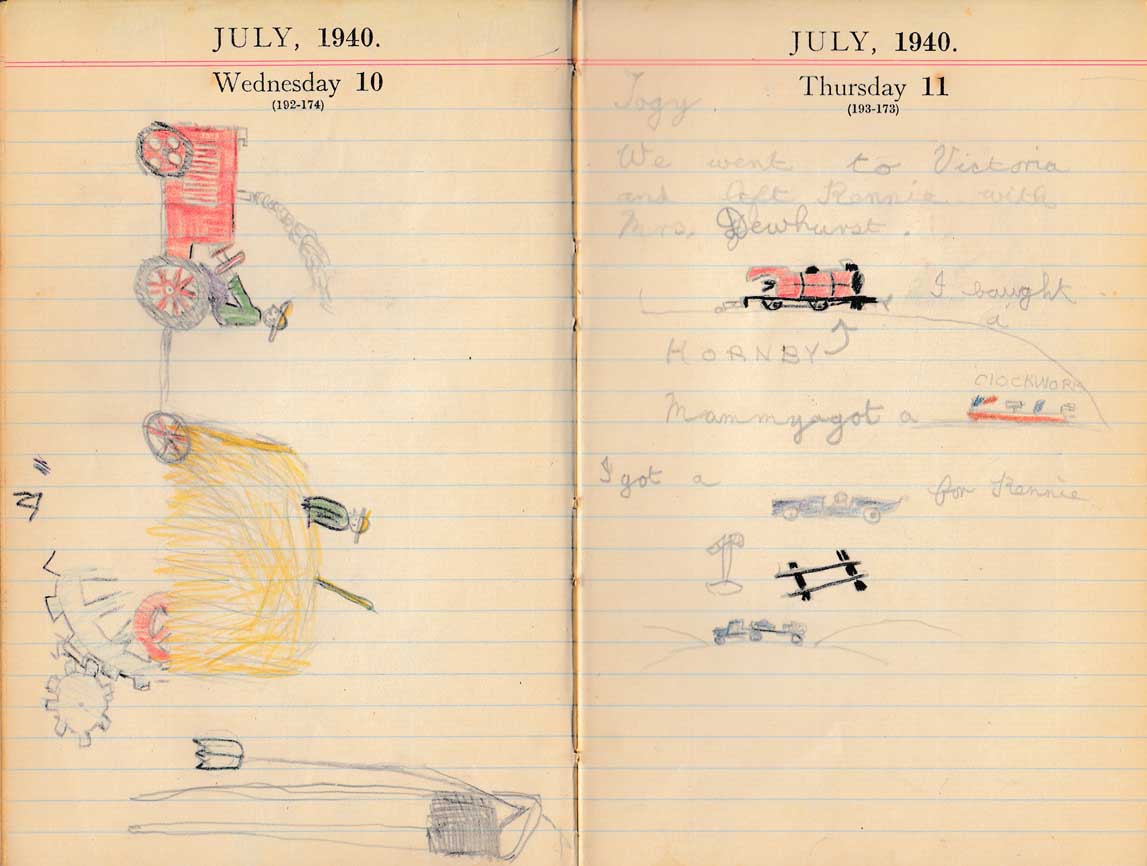 JULY, 1940.
Wednesday 10
(192-174)
JULY, 1940.
Thursday 11
(193-173)
Togy
We went to Victoria
and left Rennie with
Mrs. Dewhurst.
I baught
a
HORNBY
CLOCKWORK
Mammy got a
I got a
for Rennie